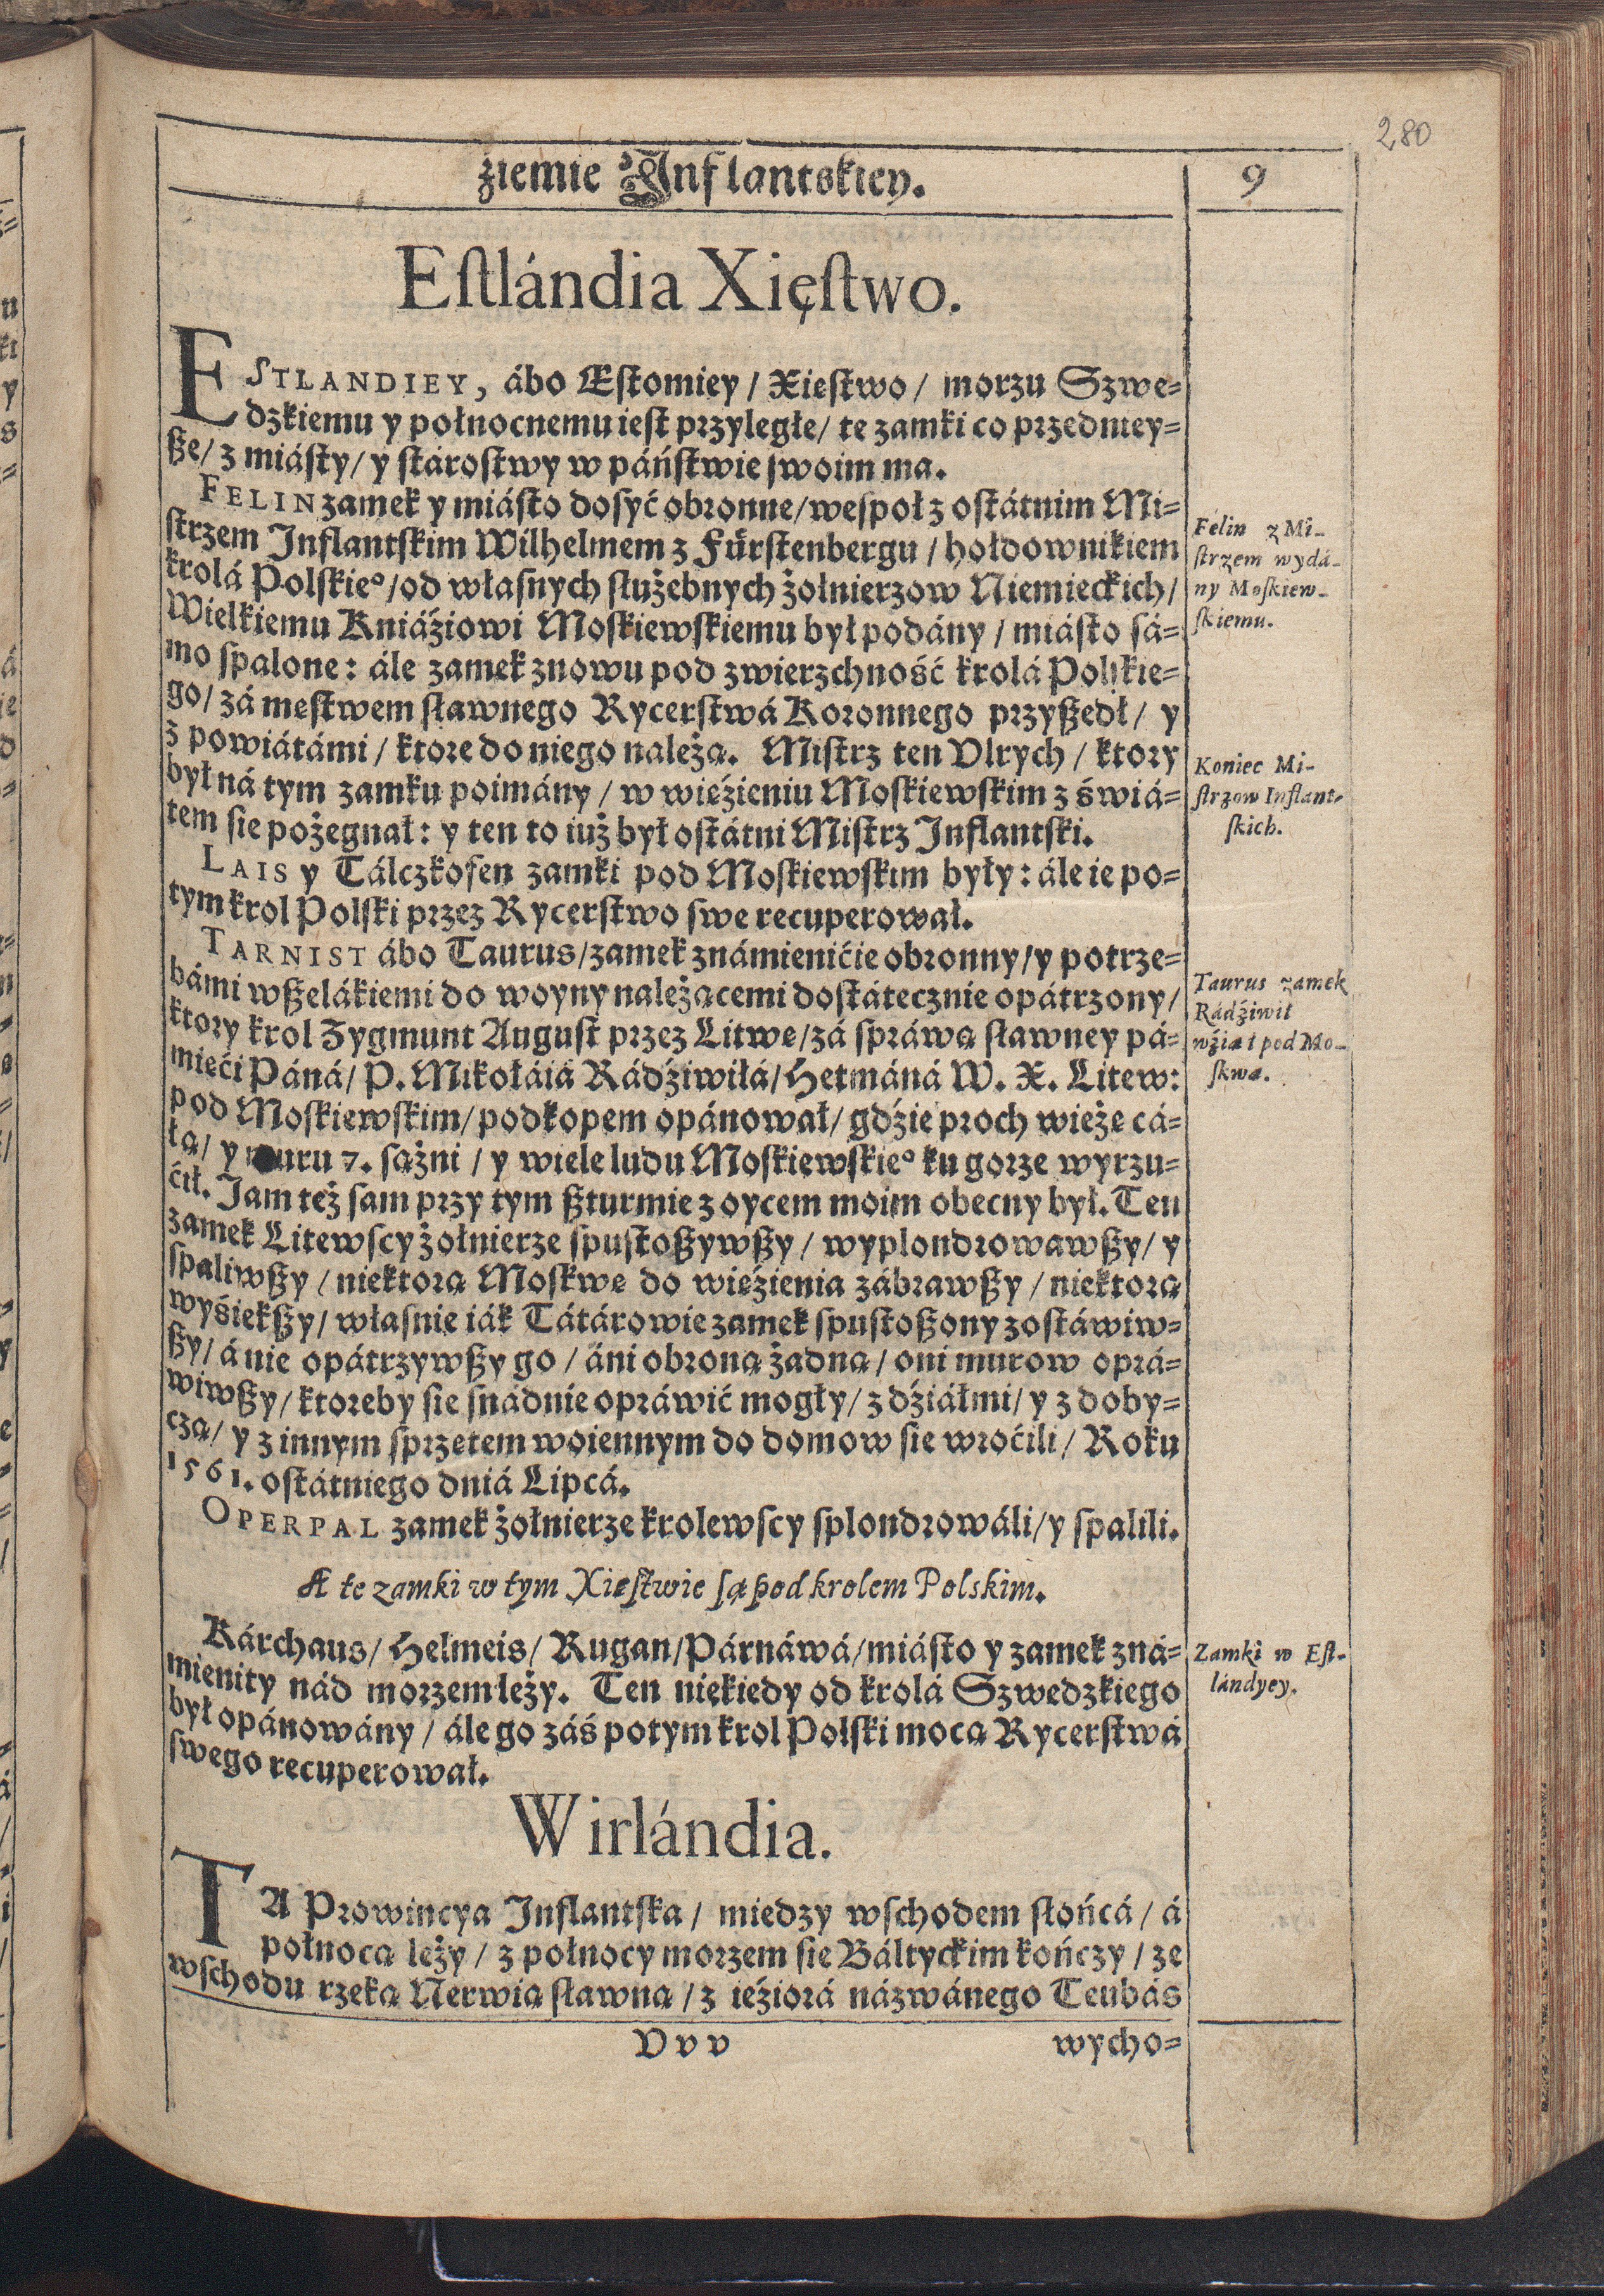 280
źiemie Inflantskiey.
9
Eſtlándia Xięſtwo.
ESTLANDIEY, ábo Eſtomiey / Xieſtwo / morzu Szwe⸗
dzkiemu y połnocnemu ieſt przyległe / te zamki co przedniey⸗
ße / z miáſty / y ſtároſtwy w páńſtwie ſwoim ma.
FELIN zamek y miáſto doſyć obronne / weſpoł z oſtátnim Mi⸗
ſtrzem Inflantſkim Wilhelmem z Fürſtenbergu / hołdownikiem
krolá Polſkieº / od właſnych ſłużebnych żołnierzow Niemieckich /
Wielkiemu Kniáźiowi Moſkiewſkiemu był podány / miáſto sá⸗
mo ſpalone : ále zamek znowu pod zwierzchność krolá Polſkie⸗
go / zá meſtwem ſławnego Rycerſtwá Koronnego przyßedł / y
z powiátámi / ktore do niego należą. Miſtrz ten Vlrych / ktory
był ná tym zamku poimány / w wieźieniu Moſkiewſkim z świá⸗
tem ſie pożegnał : y ten to iuż był oſtátni Miſtrz Inflantſki.
LAIS y Tálczkofen zamki pod Moſkiewſkim były : ále ie po⸗
tym krol Polſki przez Rycerſtwo ſwe recuperował.
TARNIST ábo Taurus / zamek známienićie obronny / y potrze⸗
bámi wßelákiemi do woyny należącemi doſtátecznie opátrzony /
ktory krol Zygmunt Auguſt przez Litwe / zá ſpráwą ſławney pá⸗
mieći Páná / P. Mikołáiá Rádźiwiłá / Hetmáná W. X. Litew:
pod Moſkiewſkim / podkopem opánował / gdźie proch wieże cá⸗
łą / y muru 7. ſążni / y wiele ludu Moſkiewſkieº ku gorze wyrzu⸗
ćił. Jam też ſam przy tym ßturmie z oycem moim obecny był. Ten
zamek Litewſcy żołnierze ſpuſtoßywßy / wyplondrowawßy / y
ſpaliwßy / niektorą Moſkwe do wieźienia zábrawßy / niektorą
wyśiekßy / właſnie iák Tátárowie zamek ſpuſtoßony zoſtáwiw⸗
ßy / á nie opátrzywßy go / áni obroną żadną / oni murow oprá⸗
wiwßy / ktoreby ſie ſnádnie opráwić mogły / z dźiáłmi / y z doby⸗
czą / y z innym ſprzetem woiennym do domow ſie wroćili / Roku
1561. oſtátniego dniá Lipcá.
OPERPAL zamek żołnierze krolewſcy ſplondrowáli / y ſpalili.
A te zamki w tym Xięſtwie ſą pod krolem Polskim.
Kárchaus / Helmeis / Rugan / Párnáwá / miáſto y zamek zná⸗
mienity nád morzem leży. Ten niekiedy od krolá Szwedzkiego
był opánowány / ále go záś potym krol Polſki mocą Rycerſtwá
ſwego recuperował.
Felin z Mi-
ſtrzem wydá-
ny Moſkiew-
ſkiemu.
Koniec Mi-
ſtrzow Inflant-
ſkich.
Taurus zamek
Rádźiwił
wźiął pod Mo-
ſkwą.
Zamki w Eſt-
lándyey.
Wirlándia.
TA Prowincya Inflantſka / miedzy wſchodem ſłońcá / á
połnocą leży / z połnocy morzem ſie Báltyckim kończy / ze
wſchodu rzeką Nerwią ſławną / z ieźiorá názwánego Teubás
Vvv
wycho⸗